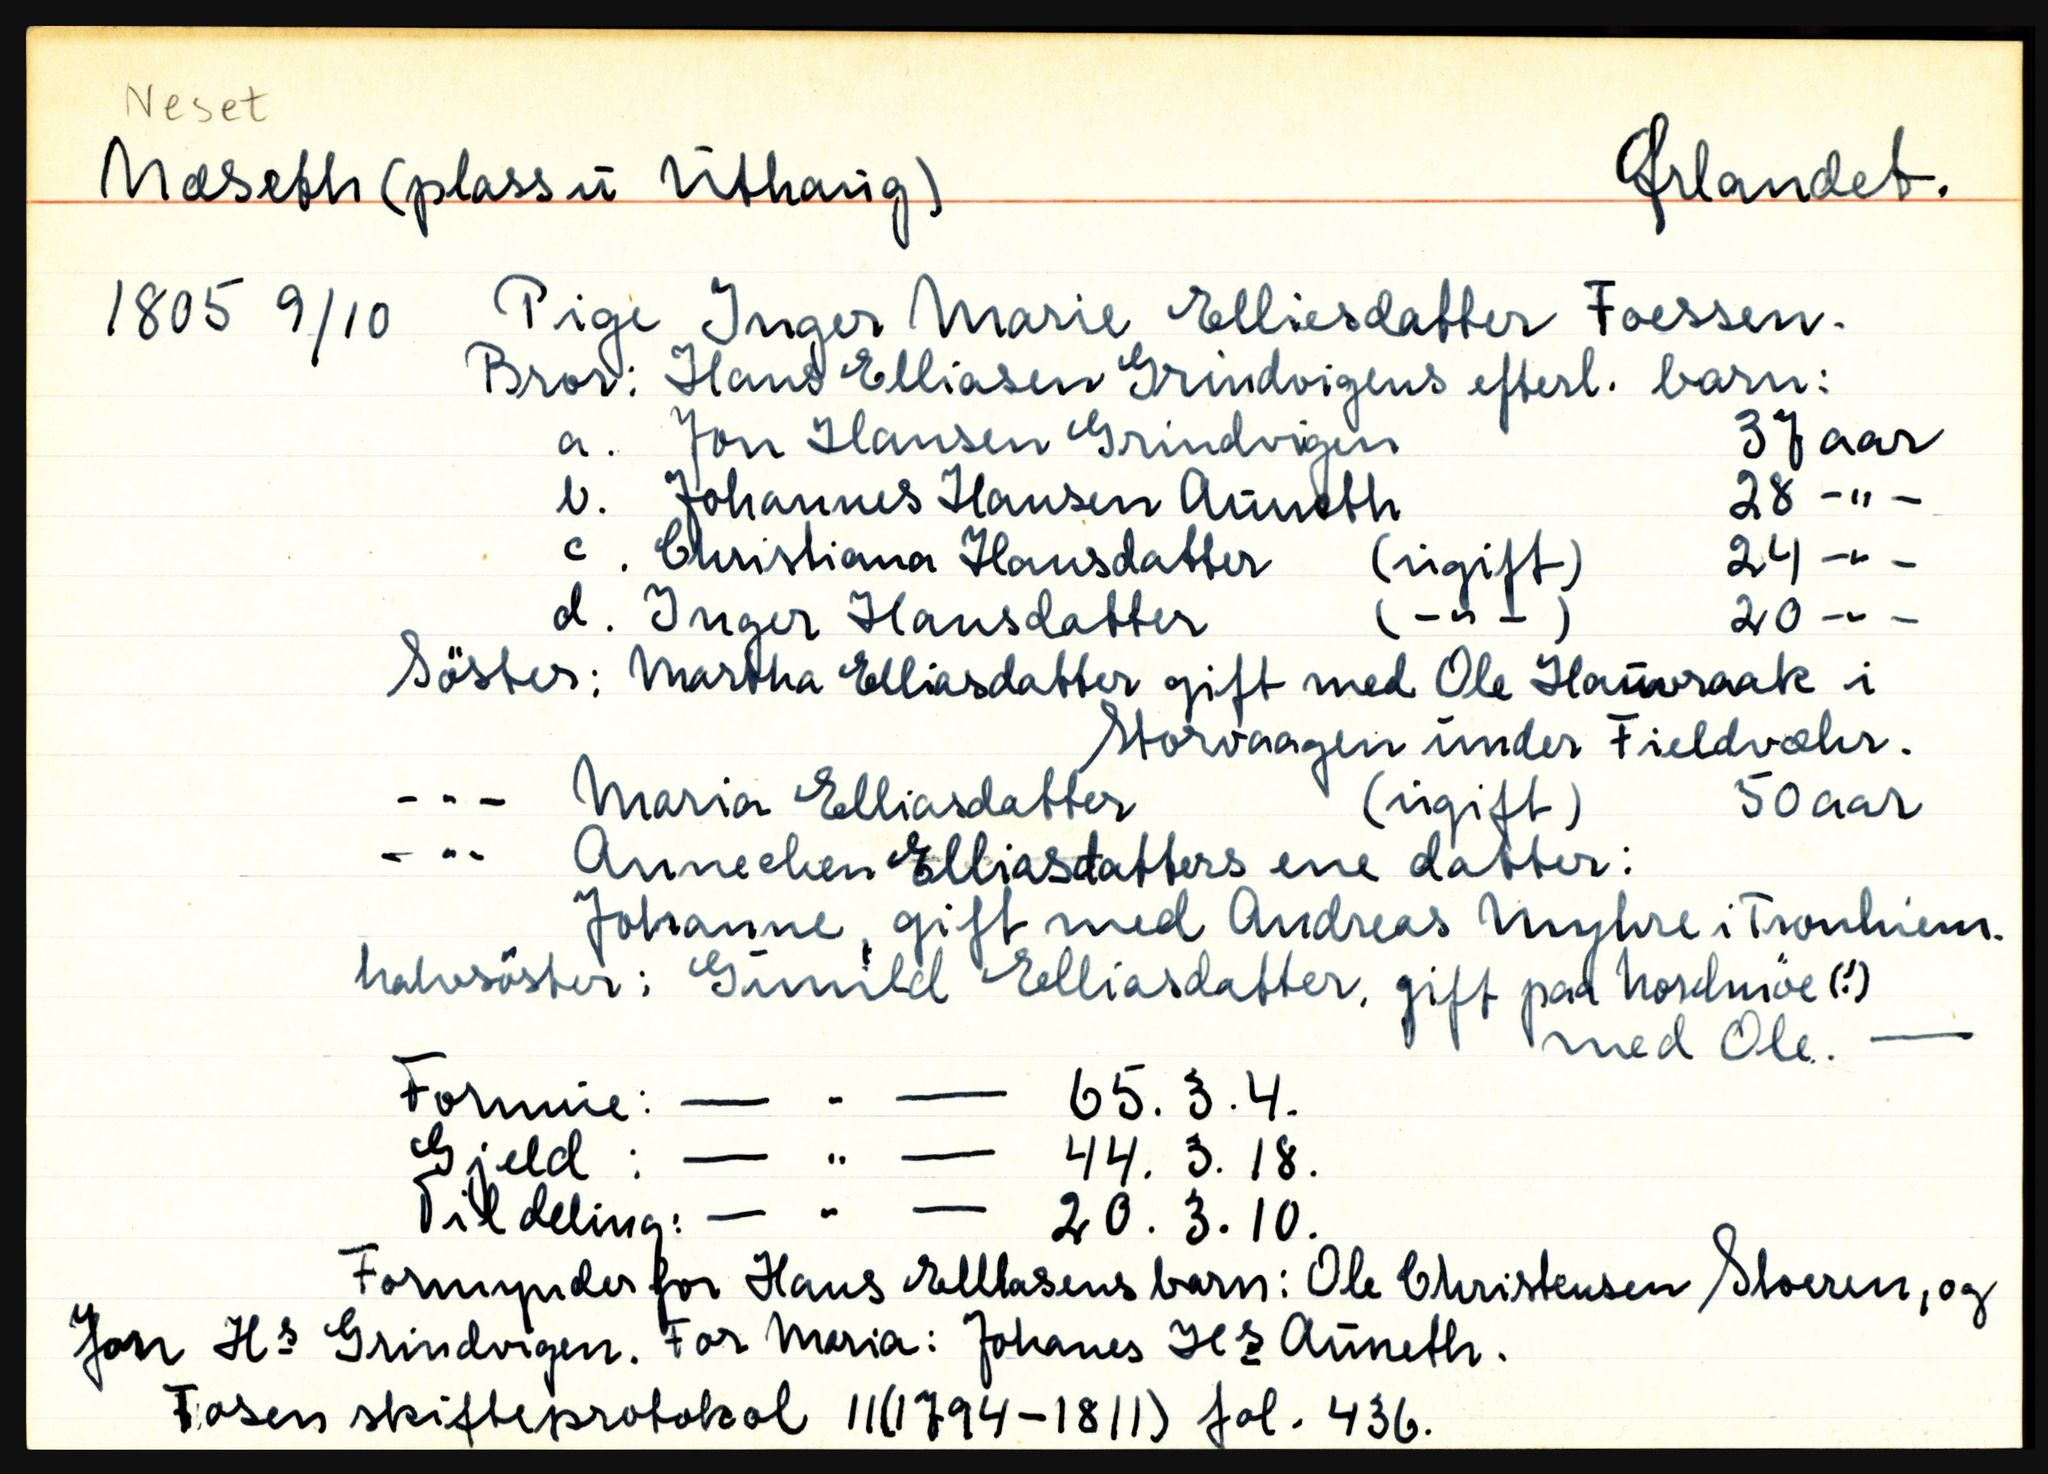 Neset
Næseth (plass u Uthaug) Ørlandet.
1805 9/10 Pige Inger Marie Elliesdatter Foessen.
Bror: Hans Elliasen Grindvigens efterl. barn:
a. Jon Hansen Grindvigen 37 aar
b. Johannes Hansen Auneth 28 -"-
c. Christiana Hansdatter (ugift) 24 -"-
d. Inger Hansdatter (-"-) 20 -"-
Söster: Martha Elliasdatter gift med Ole Hauvraak i
Storvaagen under Fieldvæhr.
-"- Maria Elliasdatter (ugift) 50 aar
-"- Annechen Elliasdatters ene datter:
Johanne, gift med Andreas Myhre i Tronhiem.
halvsöster: Gunild Elliasdatter, gift paa Nordmöe (!)
med Ole. —
Formue: — " — 65. 3. 4.
Gjeld : — " — 44. 3. 18.
Til deling: — " — 20. 3. 10.
Formynder for Hans Elliasens barn: Ole Christensen Stoeren, og
Jon Hs Grindvigen. For Maria: Johanes Hs Auneth.
Fosen skifteprotokol 11(1794-1811) fol. 436.